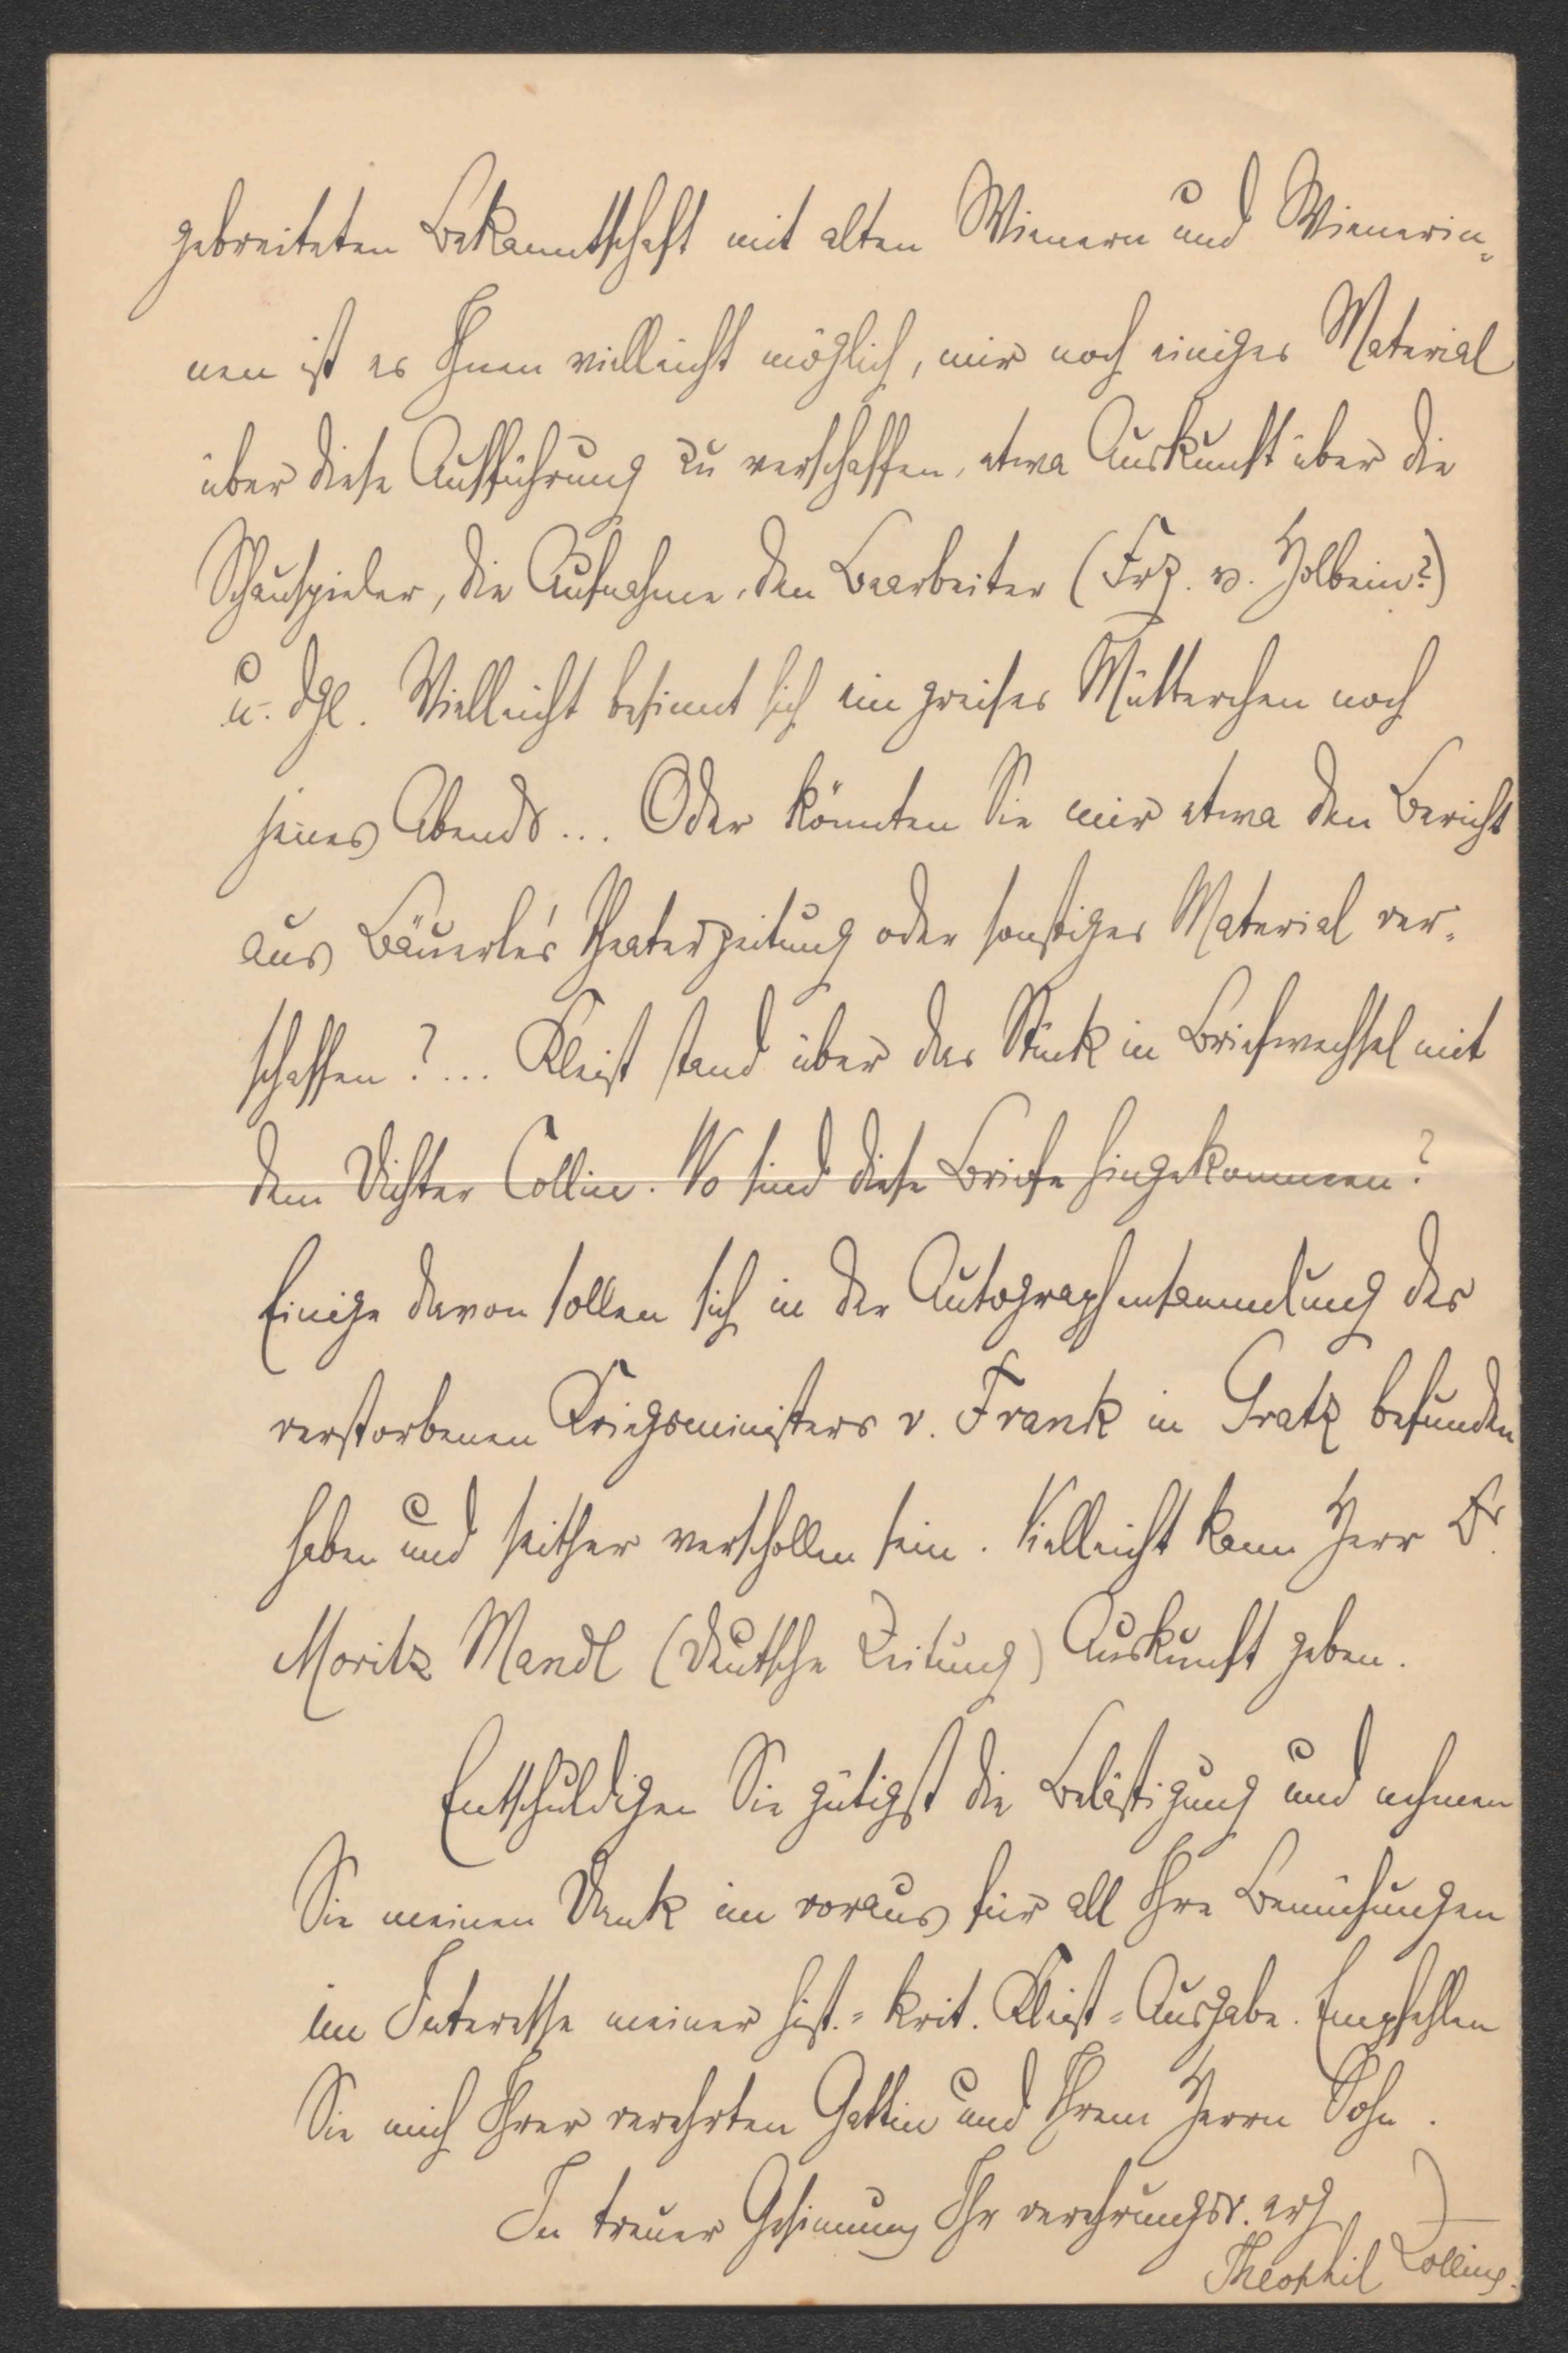 gebreiteten Bekanntschaft mit alten Wienern und Wienerin-
nen ist es Ihnen vielleicht möglich, mir noch einiges Material
über diese Aufführung zu verschaffen, etwa Auskunft über die
Schauspieler, die Aufnahme, den Bearbeiter (Frz. v. Holbein?)
u. dgl. Vielleicht besinnt sich ein greises Mütterchen noch
jenes Abends... Oder könnten Sie mir etwa den Bericht
aus Bäuerle's Theaterzeitung oder sonstiges Material ver-
schaffen?... Kleist stand über das Stück in Briefwechsel mit
dem Dichter Collin. Wo sind diese Briefe hingekommen?
Einige davon sollen sich in der Autographensammlung des
verstorbenen Kriegsministers v. Frank in Gratz befunden
haben und seither verschollen sein. Vielleicht kann Herr Dr.
Moritz Mandl (Deutsche Zeitung) Auskunft geben.
Entschuldigen Sie gütigst die Belästigung und nehmen
Sie meinen Dank im voraus für all Ihre Bemühungen
im Interesse meiner hist.-krit. Kleist-Ausgabe. Empfehlen
Sie mich Ihrer verehrten Gattin und Ihrem Herrn Sohn.
In treuer Gesinnung Ihr verehrungsv. erg
Theophil Zolling.